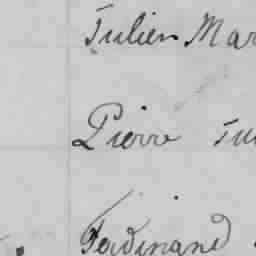 Julien Mar
Pierre Ju
Ferdinand